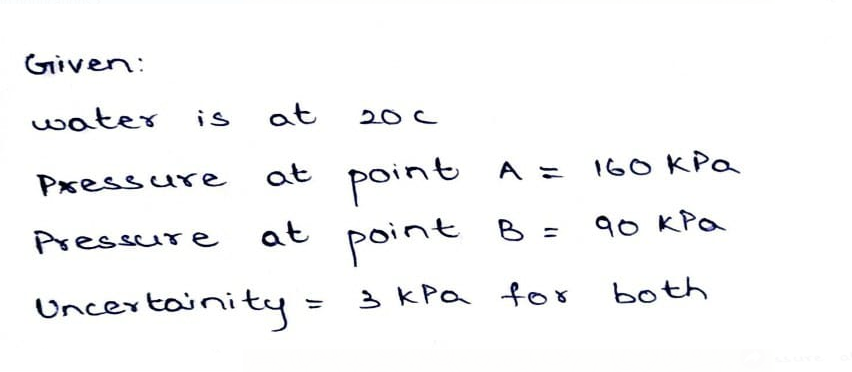 Given:
water is at 20 C
Pressure at point A = 160 KPa
Pressure at point B = 90 KPa
Uncertainity = 3 KPa for both